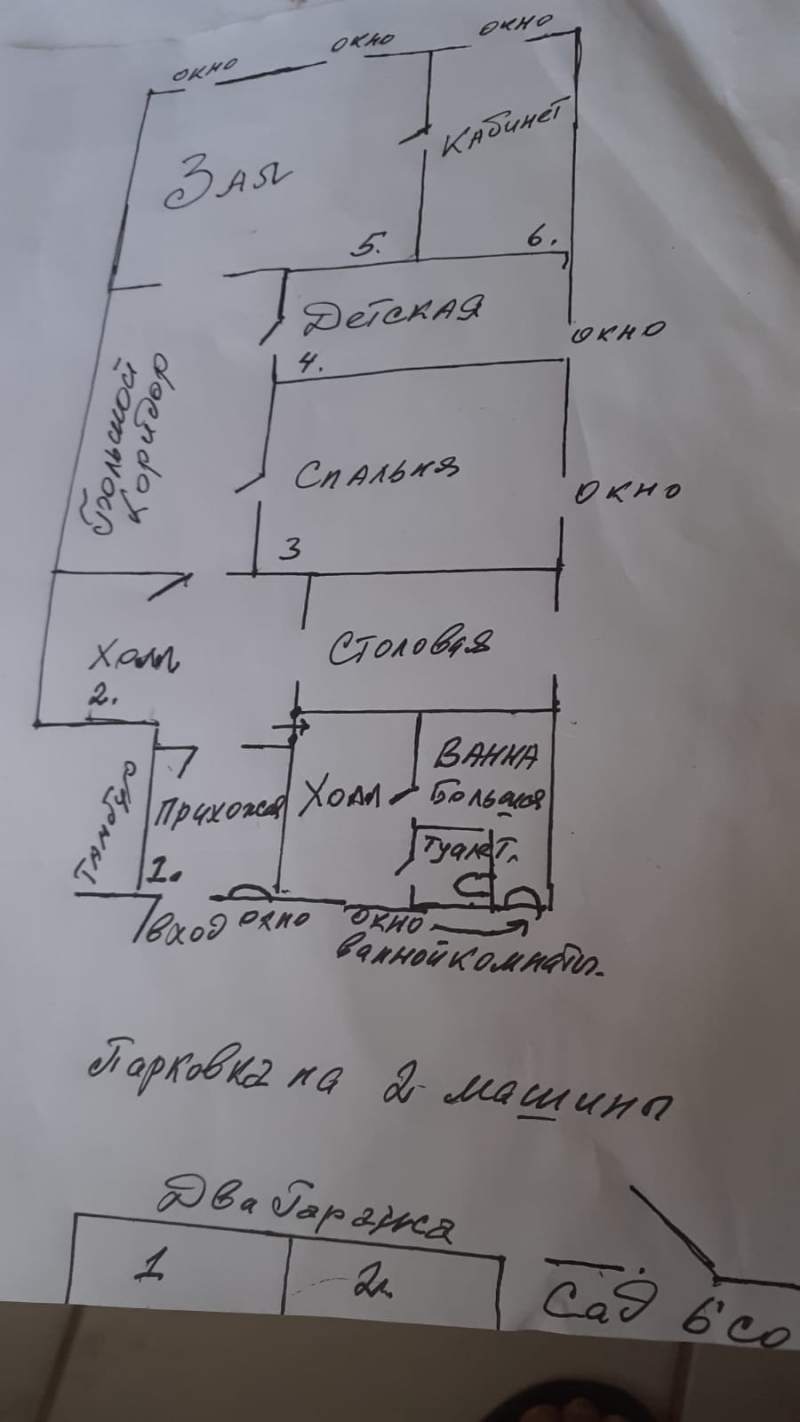 окно окно окно
Зал
Кабинет
5.
6.
Детская
окно
4.
Большой
коридор
Спальня
окно
3
Холл
2.
Столовая
Тамбур
Прихожая
1.
Холл
Ванна
большая
Туалет.
вход
окно
окно
ванной комнаты.
Парковка на 2 машины
Два Гаража
1
2.
Сад 6 со